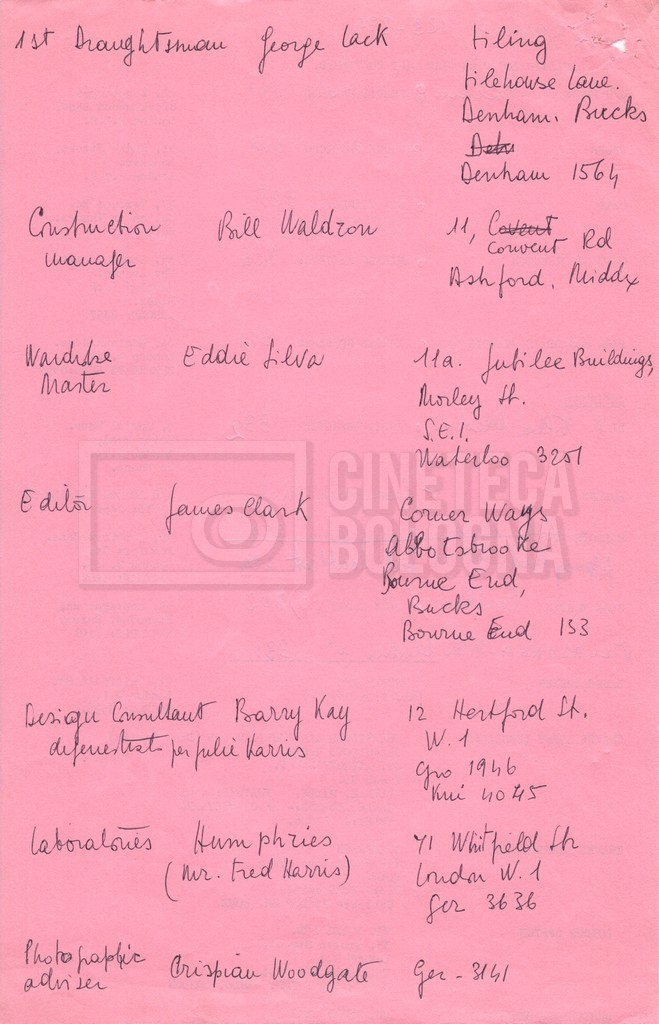 1st Draughtsman George Lack Tiling
Tilehouse Lane.
Denham. Bucks
Denham 1564
Construction Bill Waldron 11, Covent
manager Convent Rd
Ashford. Middx
Wardrobe Eddie Silva 11a. Jubilee Buildings,
Master Morley St.
S.E.1.
Waterloo 3251
Editor James Clark Corner Ways
Abbotsbrooke
Bourne End,
Bucks
Bourne End 133
CINETECA
BOLOGNA
Design Consultant Barry Kay 12 Hertford St.
defenestrato per Julie Harris W.1
Gro 1946
Kni 4045
Laboratories Humphries 71 Whitfield Str
(Mr. Fred Harris) London W.1
Ger 3636
Photographic Crispian Woodgate Ger - 3141
adviser